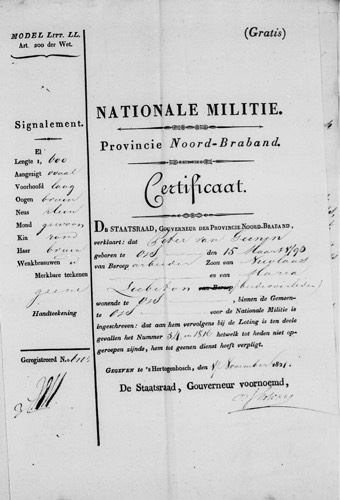 MODEL LITT. LL.
Art. 200 der Wet.
(Gratis)
Signalement.
El
Lengte 1, 600
Aangezigt ovaal
Voorhoofd laag
Oogen bruin
Neus klein
Mond gewoon
Kin rond
Haar bruin
Wenkbrauwen "
Merkbare teekenen
geene
Handteekening
Geregistreerd No.
NATIONALE MILITIE.
Provincie Noord-Braband.
Certificaat.
DE STAATSRAAD, GOUVERNEUR DER PROVINCIE NOORD-BRABAND,
verklaart: dat Peter van
geboren te Oss den 15 Maart 1798
van Beroep arbeider Zoon van
en van Maria
van Beroep (beide overleden)
wonende te Oss, binnen de Gemeen-
te Oss voor de Nationale Militie is
ingeschreven: dat aan hem vervolgens bij de Loting is ten deele
gevallen het Nummer 34 in 1816 hetwelk tot heden niet op-
geroepen zijnde, hem tot geenen dienst heeft verpligt.
GEGEVEN te 's Hertogenbosch, den November 1821.
De Staatsraad, Gouverneur voornoemd,